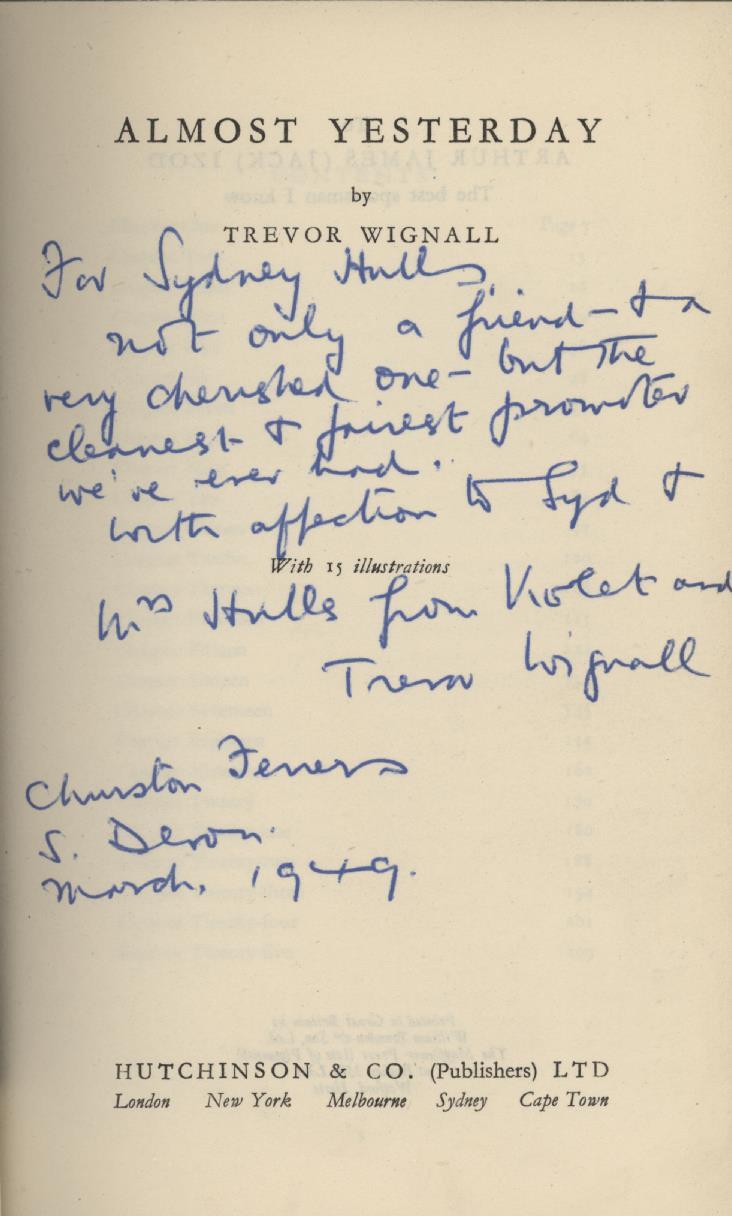 ALMOST YESTERDAY
by
TREVOR WIGNALL
For Sydney Hulls,
not only a friend – & a
very cherished one – but the
cleanest & fairest promoter
we've ever had.
With affection to Syd &
With 15 illustrations
Mrs Hulls from Violet and
Trevor Wignall
Churston Ferrers
S. Devon.
March, 1949.
HUTCHINSON & CO. (Publishers) LTD
London New York Melbourne Sydney Cape Town